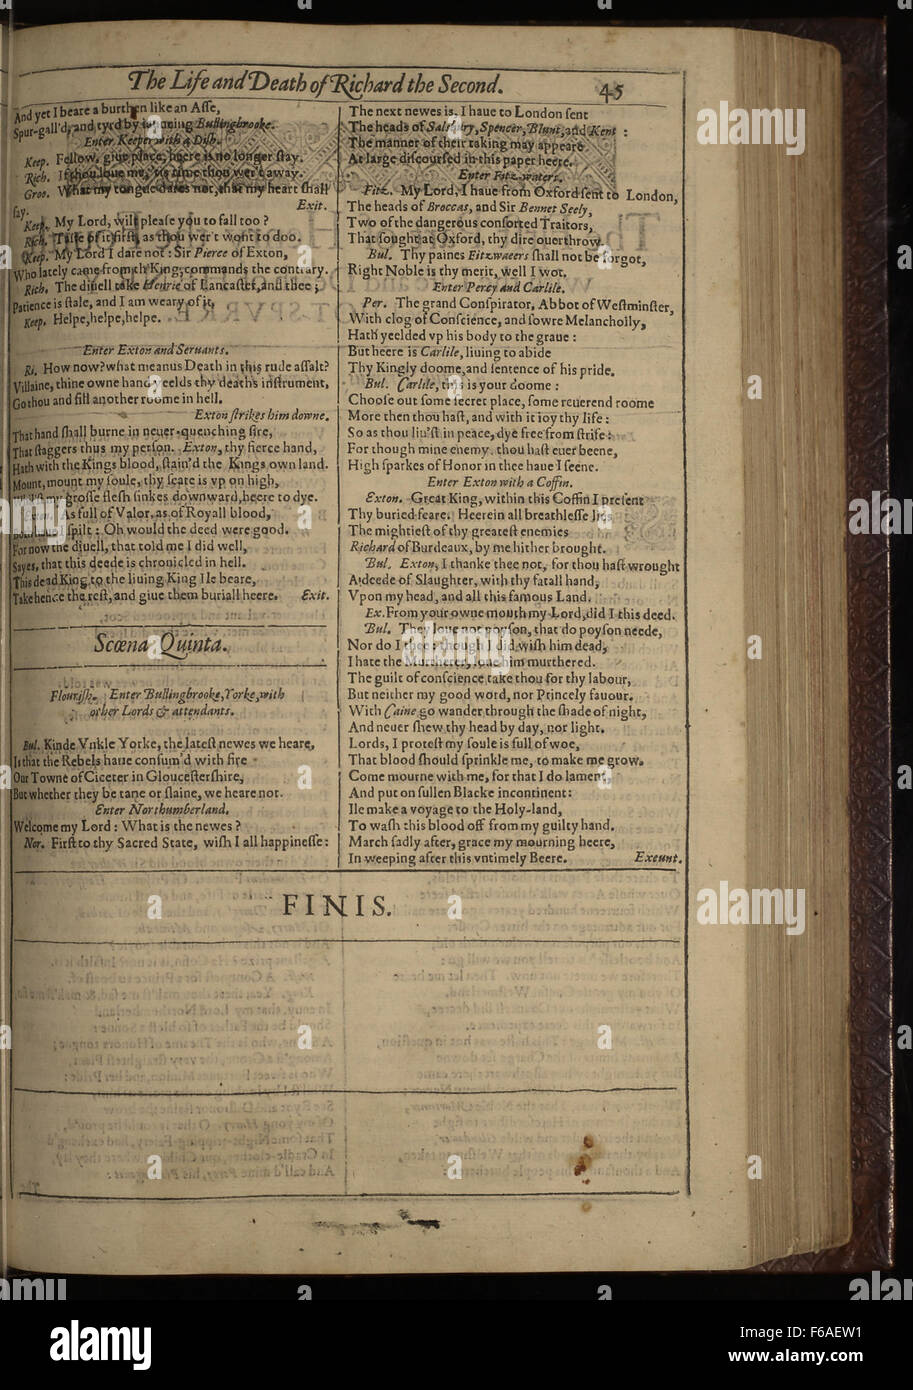 The Life and Death of Richard the Second. 45
And yet I beare a burthen like an Aſſe,
Spur-gall'd, and tyrd by Bullingbrooke.
Enter Keeper with a Diſh.
Keep. Fellow, giue place, heere is no longer ſtay.
Rich. If thou loue me, 'tis time thou wer't away.
Groo. What my tongue dares not, that my heart ſhall
ſay. Exit.
Keep. My Lord, will pleaſe you to fall too?
Rich. Taſte of it firſt, as thou wer't wont to doo.
Keep. My Lord I dare not: Sir Pierce of Exton,
Who lately came from th' King, commands the contrary.
Rich. The diuell take Henrie of Lancaſter, and thee;
Patience is ſtale, and I am weary of it.
Keep. Helpe, helpe, helpe.
Enter Exton and Seruants.
Ri. How now? what meanus Death in this rude aſſalt?
Villaine, thine owne hand yeelds thy deaths inſtrument,
Go thou and fill another roome in hell.
Exton ſtrikes him downe.
That hand ſhall burne in neuer-quenching fire,
That ſtaggers thus my perſon. Exton, thy fierce hand,
Hath with the Kings blood, ſtain'd the Kings own land.
Mount, mount my ſoule, thy ſeate is vp on high,
my groſſe fleſh ſinkes downward, heere to dye.
Exton. As full of Valor, as of Royall blood,
I ſpilt: Oh would the deed were good.
For now the diuell, that told me I did well,
Sayes, that this deede is chronicled in hell.
This dead King to the liuing King Ile beare,
Take hence the reſt, and giue them buriall heere. Exit.
Scœna Quinta.
Flouriſh. Enter Bullingbrooke, Yorke, with
other Lords & attendants.
Bul. Kinde Vnkle Yorke, the lateſt newes we heare,
Is that the Rebels haue conſum'd with fire
Our Towne of Ciceter in Glouceſterſhire,
But whether they be tane or ſlaine, we heare not.
Enter Northumberland.
Welcome my Lord: What is the newes?
Nor. Firſt to thy Sacred State, wiſh I all happineſſe:
The next newes is, I haue to London ſent
The heads of Salsbury, Spencer, Blunt, and Kent:
The manner of their taking may appeare
At large diſcourſed in this paper heere.
Enter Fitz-waters.
Fitz. My Lord, I haue from Oxford ſent to London,
The heads of Broccas, and Sir Bennet Seely,
Two of the dangerous conſorted Traitors,
That ſought at Oxford, thy dire ouerthrow.
Bul. Thy paines Fitzwaters ſhall not be forgot,
Right Noble is thy merit, well I wot.
Enter Percy and Carlile.
Per. The grand Conſpirator, Abbot of Weſtminſter,
With clog of Conſcience, and ſowre Melancholly,
Hath yeelded vp his body to the graue:
But heere is Carlile, liuing to abide
Thy Kingly doome, and ſentence of his pride.
Bul. Carlile, this is your doome:
Chooſe out ſome ſecret place, ſome reuerend roome
More then thou haſt, and with it ioy thy life:
So as thou liu'ſt in peace, dye free from ſtrife:
For though mine enemy, thou haſt euer beene,
High ſparkes of Honor in thee haue I ſeene.
Enter Exton with a Coffin.
Exton. Great King, within this Coffin I preſent
Thy buried feare. Heerein all breathleſſe lies
The mightieſt of thy greateſt enemies
Richard of Burdeaux, by me hither brought.
Bul. Exton, I thanke thee not, for thou haſt wrought
A deede of Slaughter, with thy fatall hand,
Vpon my head, and all this famous Land.
Ex. From your owne mouth my Lord, did I this deed.
Bul. They loue not poyſon, that do poyſon neede,
Nor do I thee: though I did wiſh him dead,
I hate the Murtherer, loue him murthered.
The guilt of conſcience take thou for thy labour,
But neither my good word, nor Princely fauour.
With Caine go wander through the ſhade of night,
And neuer ſhew thy head by day, nor light.
Lords, I proteſt my ſoule is full of woe,
That blood ſhould ſprinkle me, to make me grow.
Come mourne with me, for that I do lament,
And put on ſullen Blacke incontinent:
Ile make a voyage to the Holy-land,
To waſh this blood off from my guilty hand.
March ſadly after, grace my mourning heere,
In weeping after this vntimely Beere. Exeunt.
FINIS.
alamy
Image ID: F6AEW1
www.alamy.com